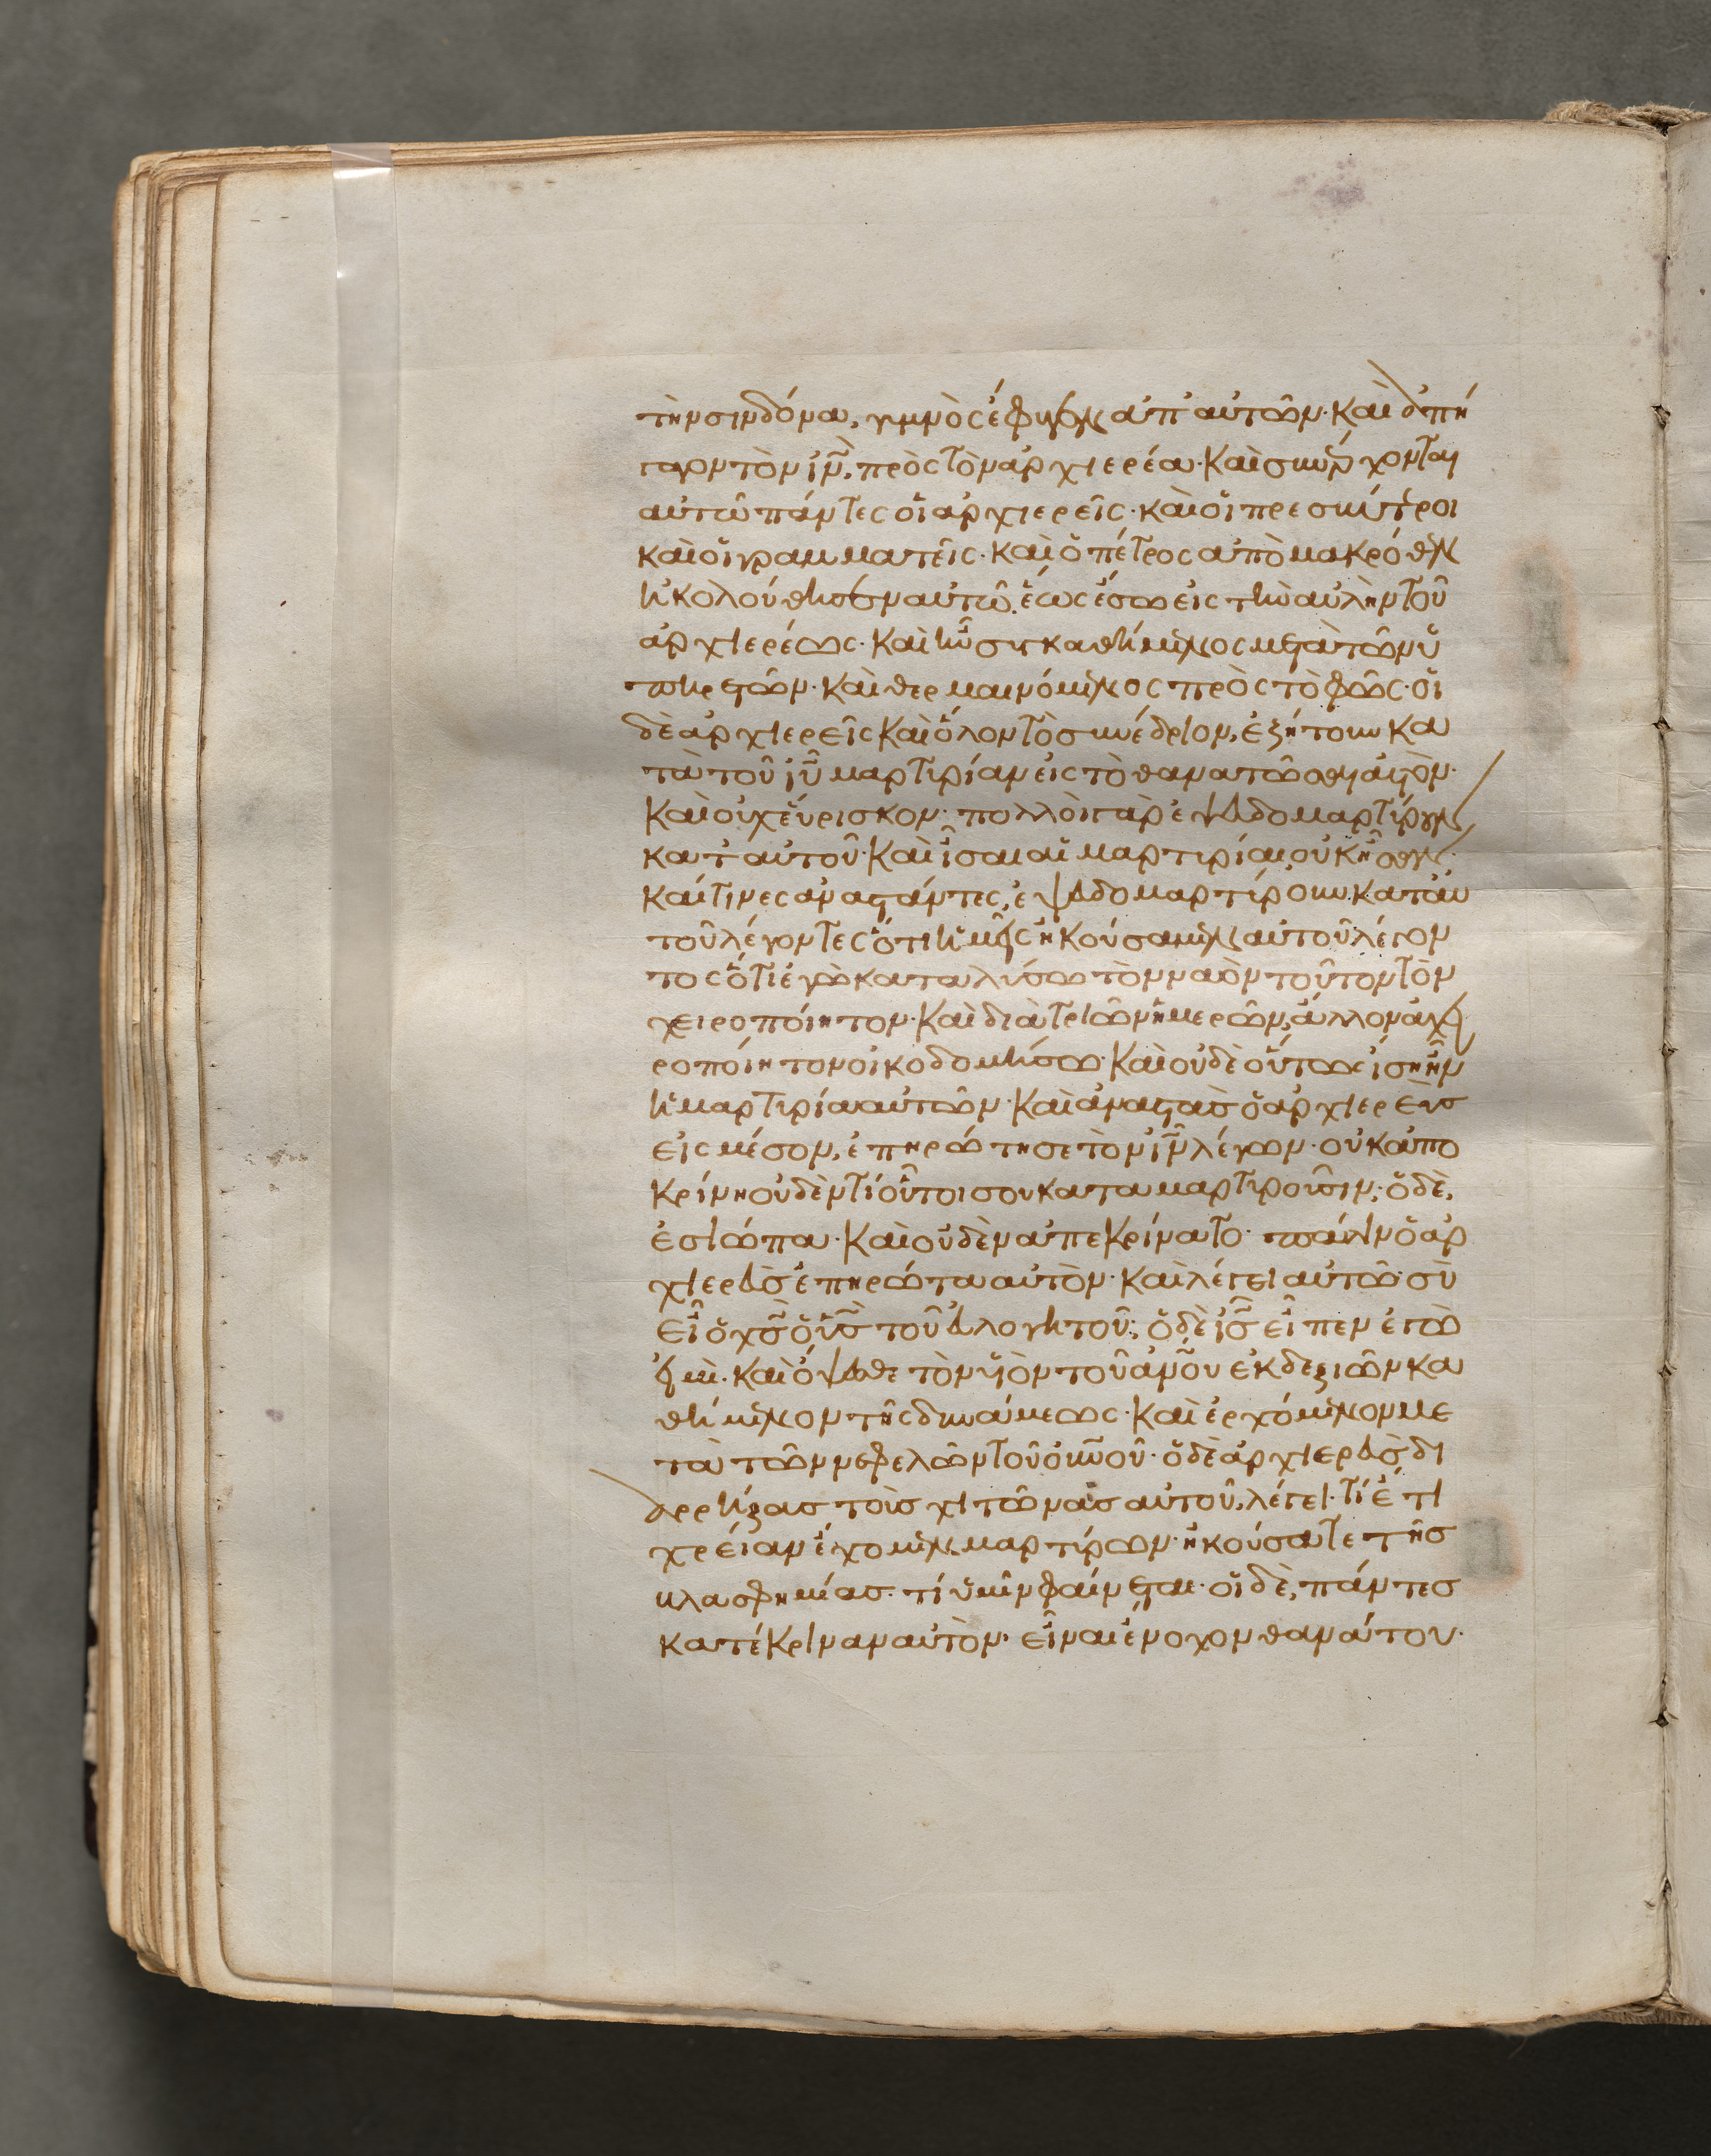 τὴν σινδόνα, γυμνὸς ἔφυγεν ἀπ' αὐτῶν· Καὶ ἀπή
γαγον τὸν ἰν̅, πρὸς τὸν ἀρχιερέα· Καὶ συνέρχονται
αὐτῶ πάντες οἱ ἀρχιερεῖς· καὶ οἱ πρεσβύτεροι
καὶ οἱ γραμματεῖς· καὶ ὁ πέτρος ἀπὸ μακρόθεν
ἠκολούθησεν αὐτῶ. ἕως ἔσω εἰς τὴν αὐλὴν τοῦ
ἀρχιερέως· Καὶ ἦν συγκαθήμενος μετὰ τῶν ὑ
πηρετῶν· Καὶ θερμαινόμενος πρὸς τὸ φῶς· οἱ
δὲ ἀρχιερεῖς Καὶ ὅλον τὸ συνέδριον, ἐζήτουν Κα
τὰ τοῦ ἰυ̅ μαρτυρίαν εἰς τὸ θανατῶσαι αὐτὸν·
Καὶ οὐχ εὕρισκον· πολλοὶ γὰρ ἐψευδομαρτύρουν
κατ' αὐτοῦ· Καὶ ἴσαι αἱ μαρτυρίαι οὐκ ἦσαν·
Καί τινες ἀναστάντες, ἐψευδομαρτύρουν κατ' αυ
τοῦ λέγοντες ὅτι ἡμεῖς ἠκούσαμεν αὐτοῦ λέγον
τος ὅτι ἐγὼ καταλύσω τὸν ναὸν τοῦτον τὸν
χειροποίητον· Καὶ διὰ τριῶν ἡμερῶν, ἄλλον ἀχει
ροποίητον οἰκοδομήσω· Καὶ οὐδὲ οὕτως ἴση ἦν
ἡ μαρτυρία αὐτῶν· Καὶ ἀναστὰς ὁ ἀρχιερεὺς
εἰς μέσον, ἐπηρώτησε τὸν ἰν̅ λέγων· οὐκ ἀπο
κρίνη οὐδέν τί οὗτοι σου καταμαρτυροῦσιν; ὁ δὲ,
ἐσιώπα· Καὶ οὐδὲν ἀπεκρίνατο· πάλιν ὁ ἀρ
χιερεὺς ἐπηρώτα αὐτὸν· Καὶ λέγει αὐτῶ· σὺ
εἶ ὁ χς̅ ὁ υς̅ τοῦ εὐλογητοῦ; ὁ δὲ ις̅ εἶπεν ἐγώ
εἰμι. Καὶ ὄψεσθε τὸν υἱὸν τοῦ ἀνο̅υ ἐκ δεξιῶν κα
θήμενον τῆς δυνάμεως· Καὶ ἐρχόμενον με
τὰ τῶν νεφελῶν τοῦ οὐνο̅ῦ· ὁ δὲ ἀρχιερεὺς δι
αρρήξας τοὺς χιτῶνας αὐτοῦ, λέγει· τί ἔτι
χρείαν ἔχομεν μαρτύρων· ἠκούσατε τῆς
βλασφημίας· τί ὑμῖν φαίνεται· οἱ δὲ, πάντες
κατέκριναν αὐτὸν· εἶναι ἔνοχον θανάτου·